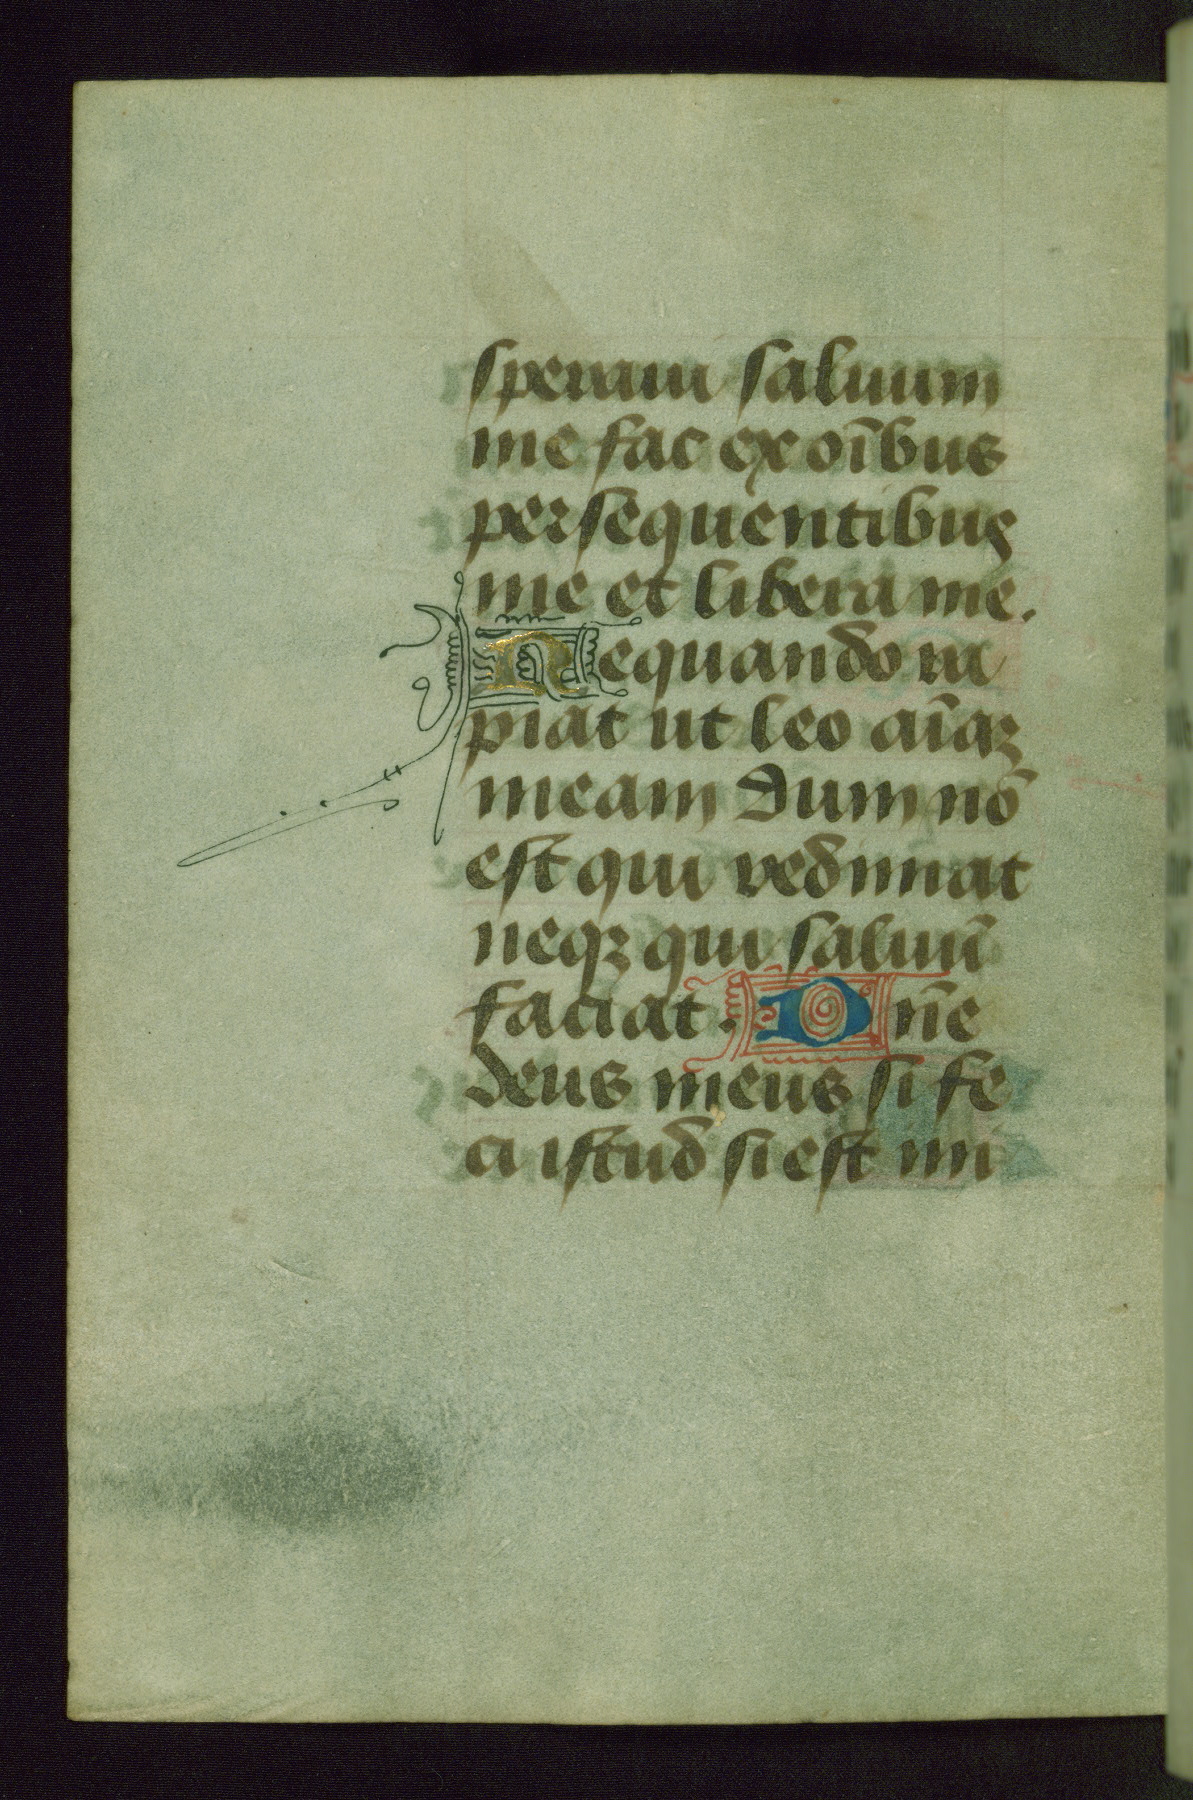 speraui saluum
me fac ex oībus
persequentibus
me et libera me.
Nequando ra
piat ut leo aīaȝ
meam dum nō
est qui redimat
neqȝ qui saluū
faciat. Dn̄e
deus meus si fe
ci istud si est ini